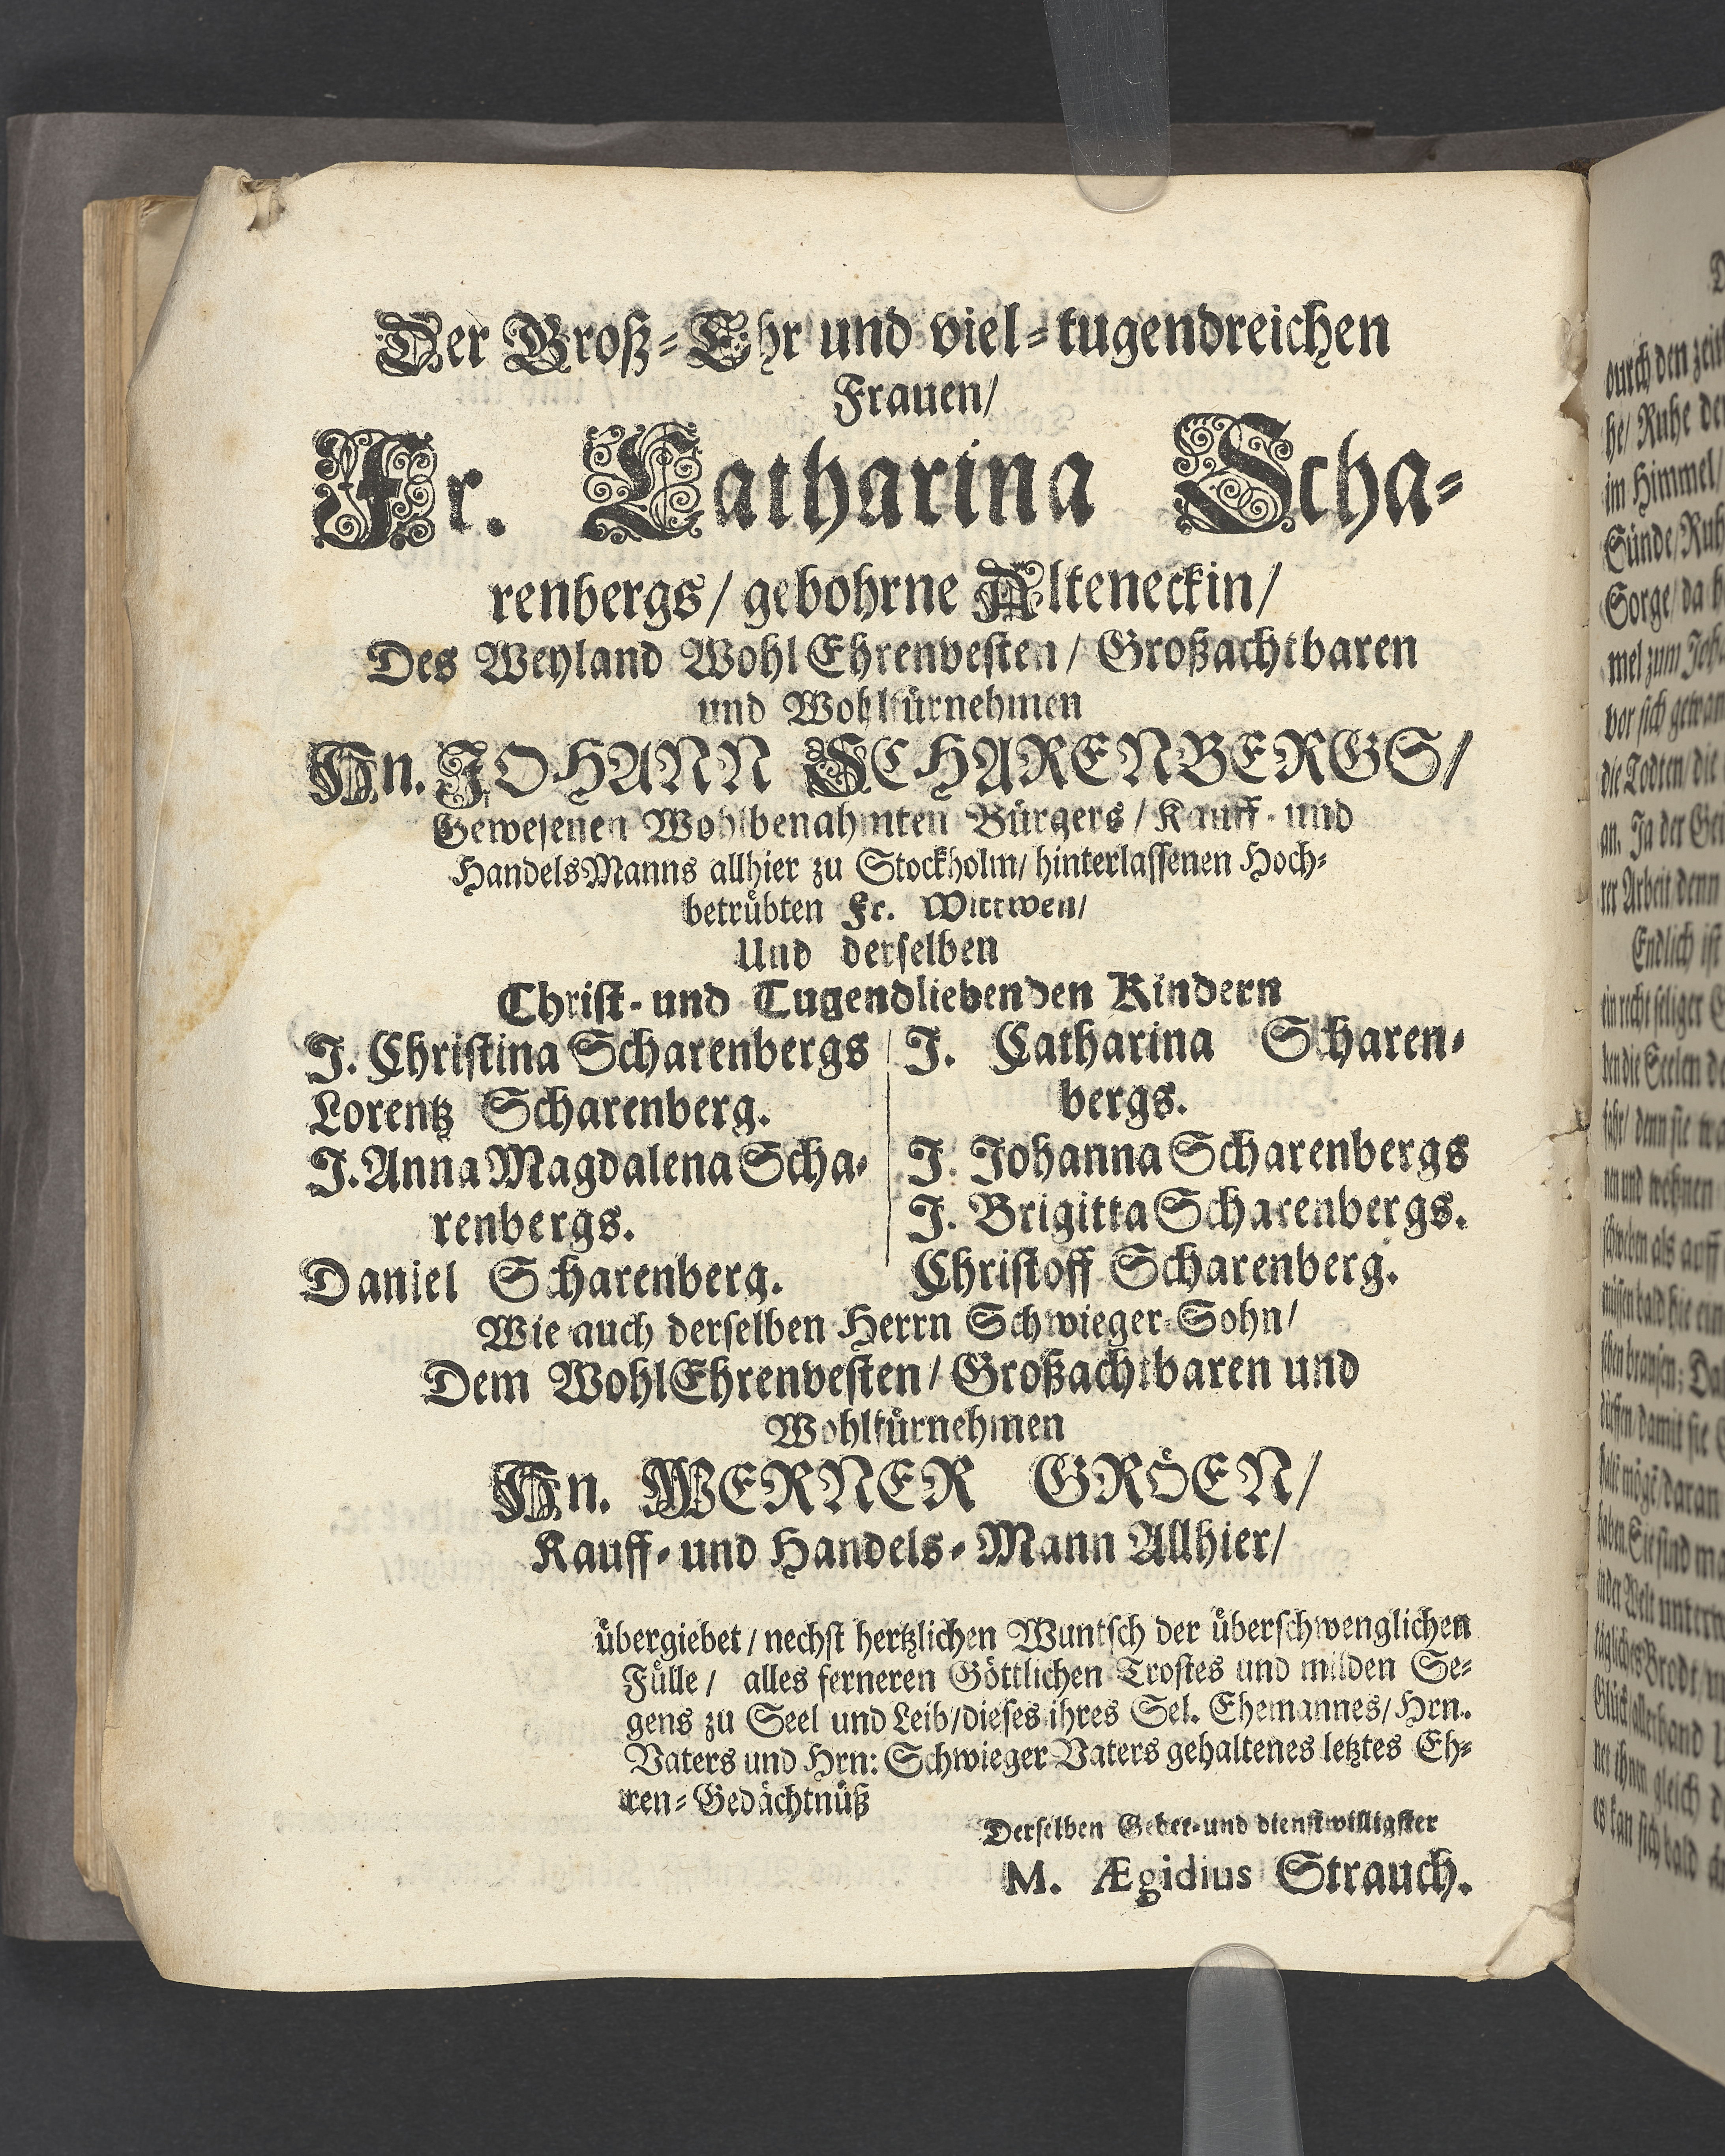 Der Groß-Ehr und viel-tugendreichen
Frauen/
Fr. Catharina Scha-
renbergs/ gebohrne Alteneckin/
Des Weyland WohlEhrenvesten/ Großachtbaren
und Wohlfürnehmen
Hn. JOHANN SCHARENBERGS/
Gewesenen Wohlbenahmten Bürgers/ Kauff- und
HandelsManns allhier zu Stockholm/ hinterlassenen Hoch-
betrübten Fr. Wittwen/
Und derselben
Christ- und Tugendliebenden Kindern
J. Christina Scharenbergs
Lorentz Scharenberg.
J. Anna Magdalena Scha-
renbergs.
Daniel Scharenberg.
J. Catharina Scharen-
bergs.
J. Johanna Scharenbergs
J. Brigitta Scharenbergs.
Christoff Scharenberg.
Wie auch derselben Herrn Schwieger-Sohn/
Dem WohlEhrenvesten/ Großachtbaren und
Wohlfürnehmen
Hn. WERNER GRÖEN/
Kauff- und Handels-Mann Allhier/
übergiebet/ nechst hertzlichen Wuntsch der überschwenglichen
Fülle/ alles ferneren Göttlichen Trostes und milden Se-
gens zu Seel und Leib/ dieses ihres Sel. Ehemannes/ Hrn.
Vaters und Hrn: SchwiegerVaters gehaltenes letztes Eh-
ren-Gedächtnüß
Derselben Gebet- und dienstwilligster
M. Ægidius Strauch.
durch den
he/ Ruhe
im Himmel/
Sünde/
Sorge/ da
mel zum
vor sich
die Todten/ die
an. Ja der
rer Arbeit/ denn
Endlich ist
ein recht seliger
den die Seelen
denn sie
nen und wohnen
als auff
müssen bald hie
damit sie
daran
haben. Sie sind
in der Welt
tägliches Brodt/
Glück/ allerhand
net ihnen gleich
es kan sich bald